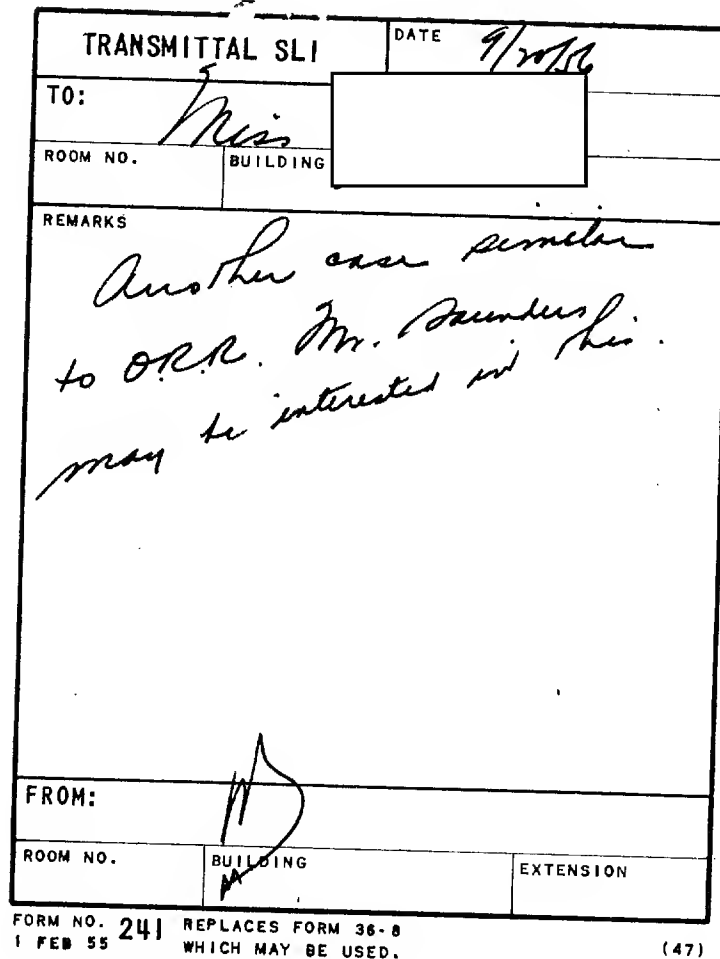 TRANSMITTAL SLI
DATE
9/20/56
TO:
Miss
ROOM NO.
BUILDING
REMARKS
Another case similar
to O.R.R. Mr. Saunders
may be interested in this.
FROM:
ROOM NO.
BUILDING
EXTENSION
FORM NO. 241 REPLACES FORM 36-8
1 FEB 55 WHICH MAY BE USED.
(47)